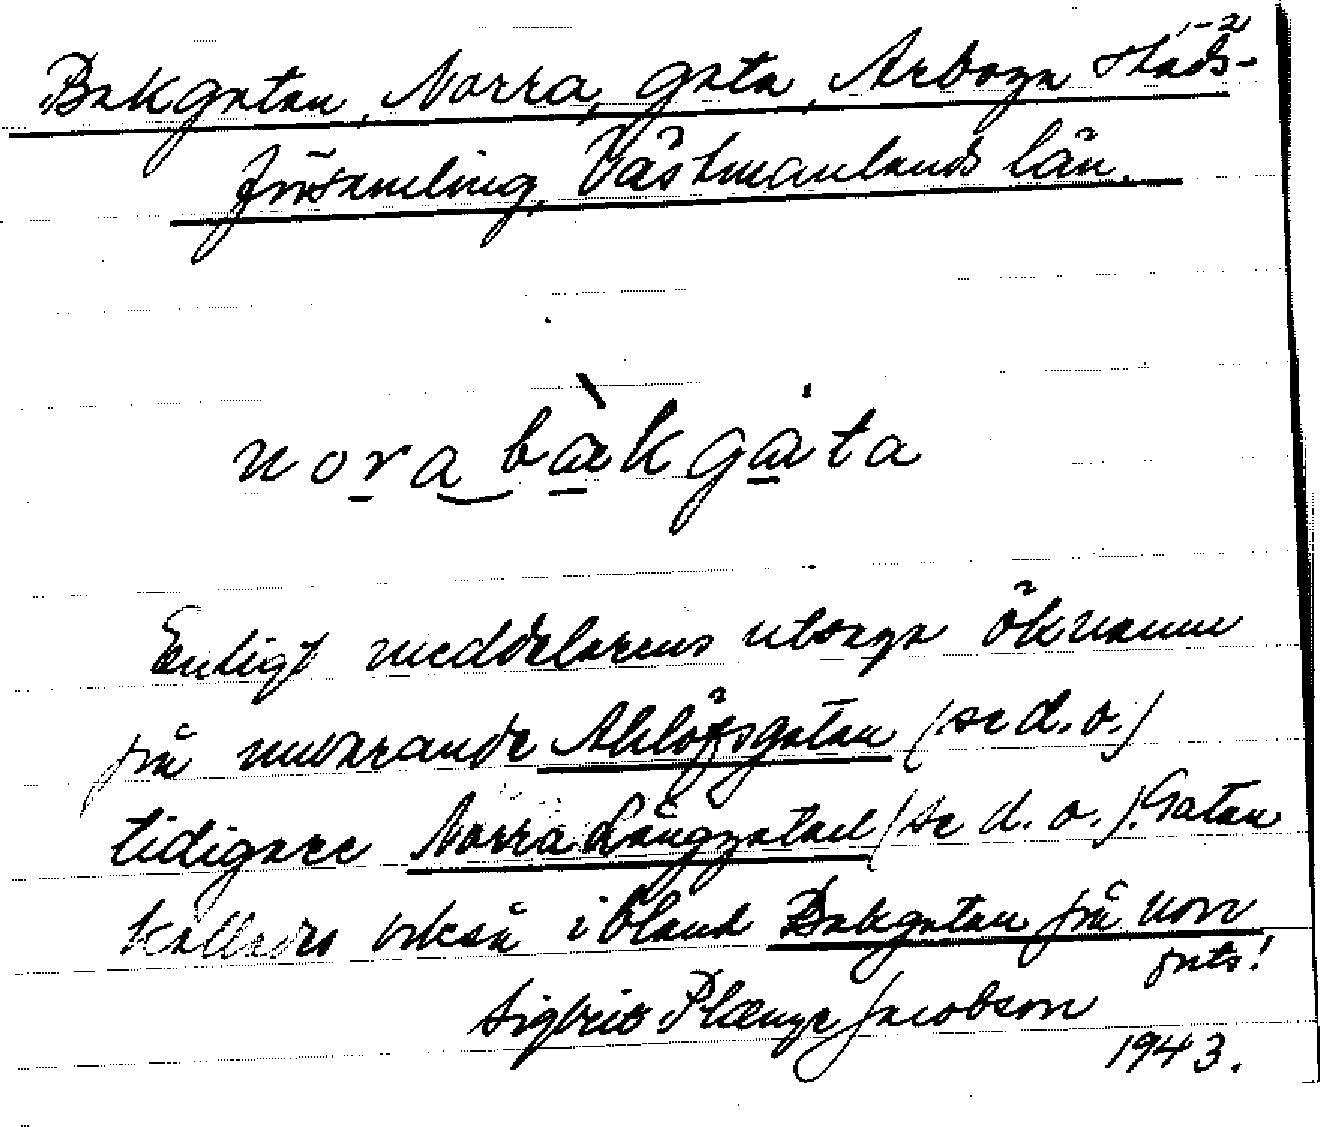 1-2
Bakgatan, Norra, gata, Arboga stads-
församling, Västmanlands län.
nora bàkgata
Enligt meddelarens utsaga öknamn
på nuvarande Ahllöfsgatan (se d.o.)
tidigare Norra Långgatan (se d.o.). Gatan
kallades också ibland Bakgatan på norr
forts!
Sigbrit Plænge Jacobson
1943.